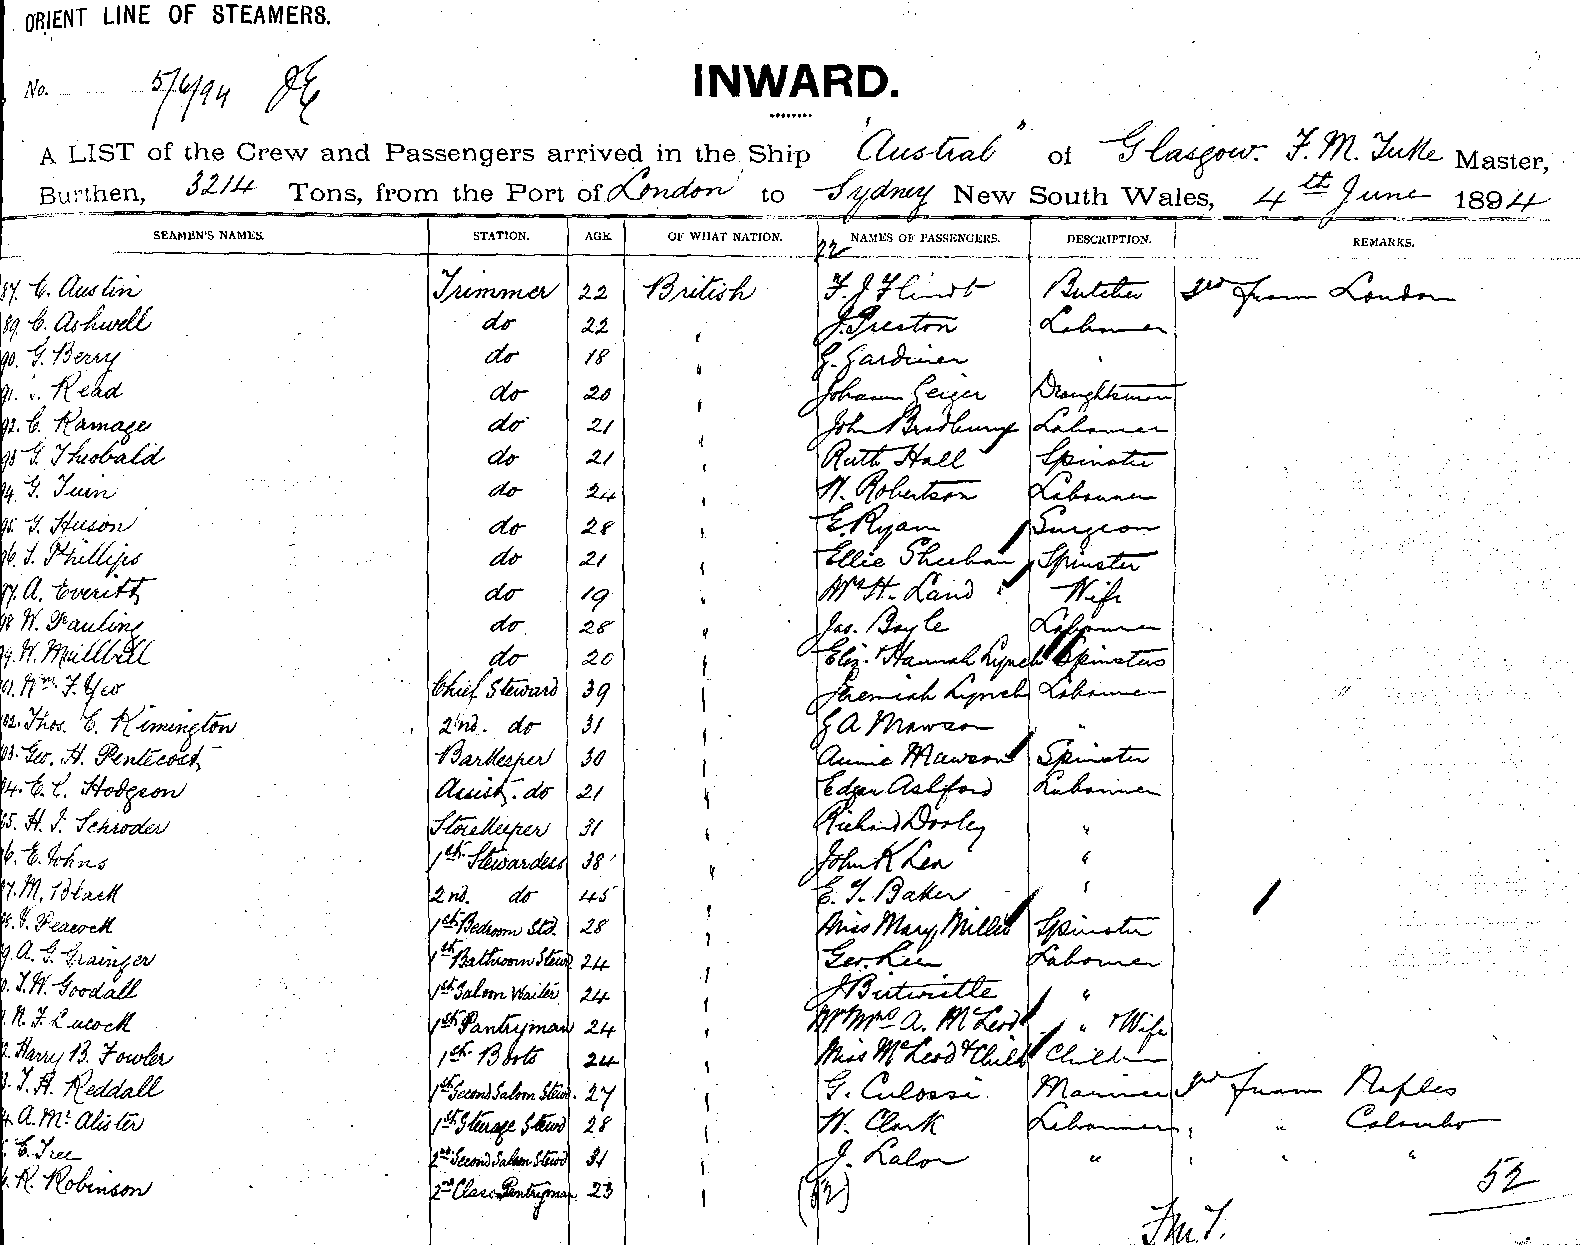 ORIENT LINE OF STEAMERS.
No. 5/6/94
INWARD.
A LIST of the Crew and Passengers arrived in the Ship "Austral" of Glasgow. F. M. Tuke Master,
Burthen, 3214 Tons, from the Port of London to Sydney New South Wales, 4th June 1894
SEAMEN'S NAMES. STATION. AGE. OF WHAT NATION. NAMES OF PASSENGERS. DESCRIPTION. REMARKS.
22
87. C. Austin Trimmer 22 British F. J. Flindt Butcher from London
89. C. Ashwell do 22 " J. Preston Labourer
90. G. Berry do 18 " G. Gardiner "
91. Read do 20 " Johann Geiger Draughtsman
92. C. Ramage do 21 " John Bradbury Labourer
93 G. Theobald do 21 " Ruth Hall Spinster
94. G. Tuin do 24 " W. Robertson Labourer
95. G. Huson do 28 " E. Ryan Surgeon
96. S. Phillips do 21 " Ellie Sheehan Spinster
97. A. Everitt do 19 " Mrs H. Laird Wife
98 W. Pauling do 28 " Jas. Boyle Labourer
99. W. Mullbell do 20 " Eliz. & Hannah Lynch Spinsters
01. Wm. F. Yeo Chief Steward 39 " Jeremiah Lynch Labourer
02. Thos. C. Rimington 2nd. do 31 " G A Mawson "
03. Geo. H. Pentecost Barkeeper 30 " Annie Mawson Spinster
04. E. C. Hodgson Assist. do 21 " Edgar Ashford Labourer
05. H. J. Schroder Storekeeper 31 " Richard Dooley "
6. E. Johns 1st. Stewardess 38 " John K Lea "
7. M. Black 2nd. do 45 " E. T. Baker "
8. Peacock 1st Bedroom Std. 28 " Miss Mary Millis Spinster
9. A. G. Grainger 1st Bathroom Stewd 24 " Geo. Lee Labourer
T. W. Goodall 1st Saloon Waiter 24 " J Birtwistle "
N. F. Lucock 1st Pantryman 24 " Mr Mrs A. McLeod " & Wife
2. Harry B. Fowler 1st. Boots 24 " Miss McLeod & Child Children
3. T. H. Reddall 1st Second Saloon Stew. 27 " G. Culossi Mariner from Naples
4. A. Mc Alister 1st Steerage Stewd 28 " W. Clark Labourer " " Colombo
C. Tree 2nd Second Saloon Stewd 31 " J. Lalor " " " "
R. Robinson 2nd Class Pantryman 23 " 52
F.M.T.